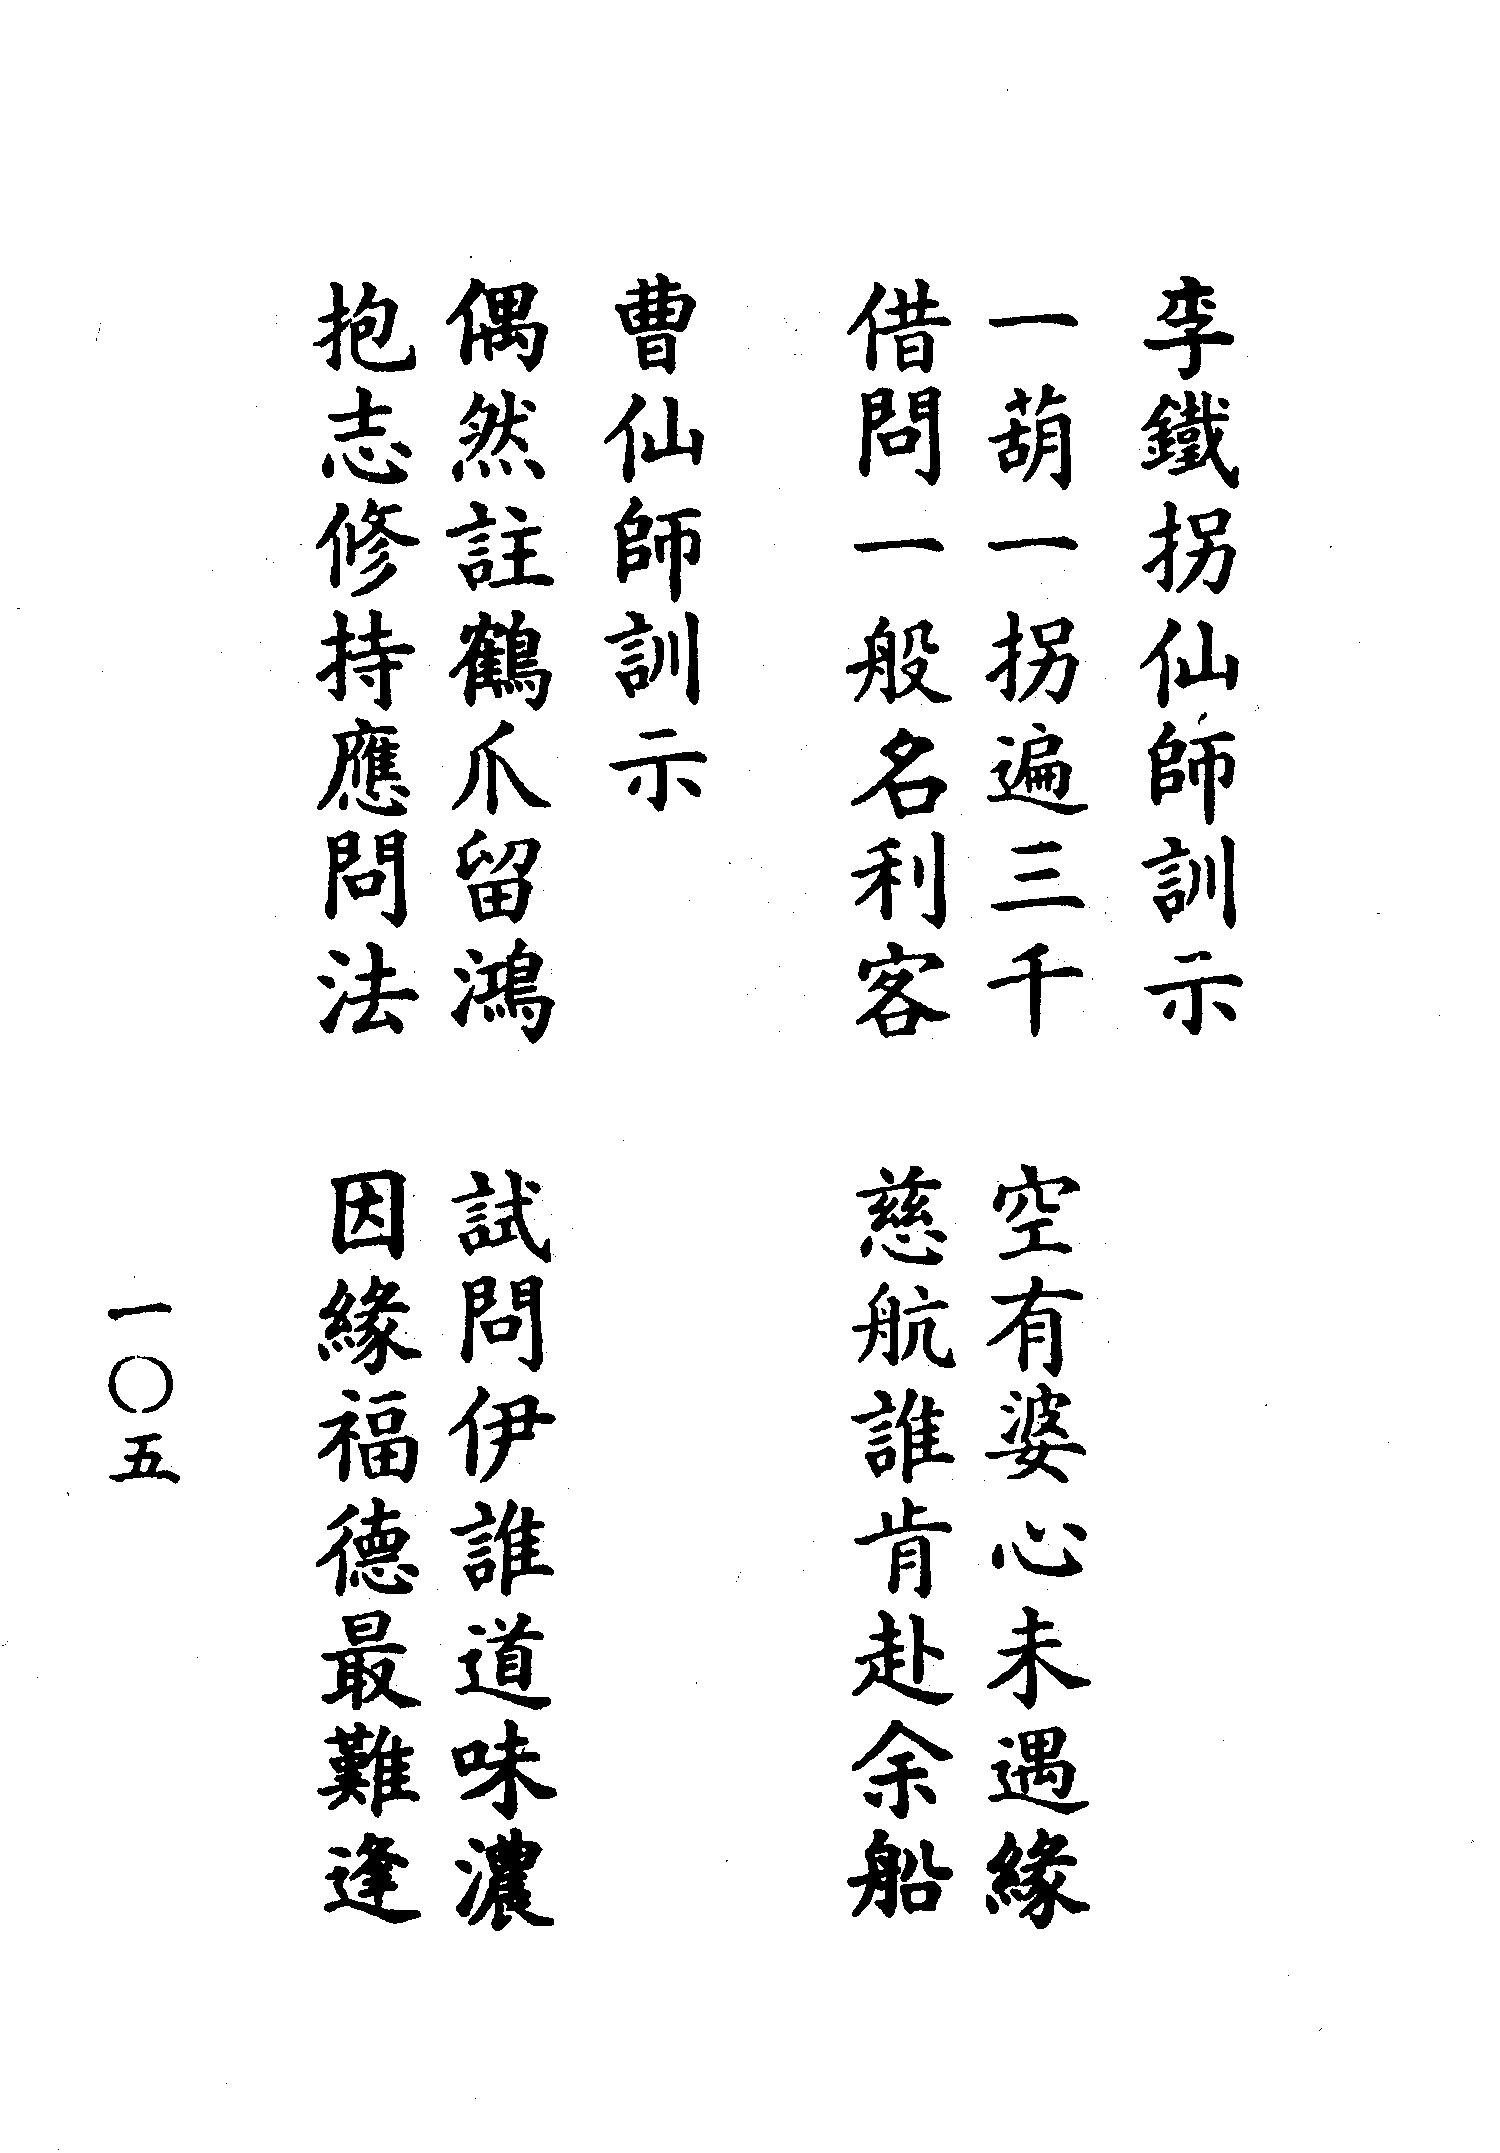 李鐵拐仙師訓示
一葫一拐遍三千　空有婆心未遇緣
借問一般名利客　慈航誰肯赴余船
曹仙師訓示
偶然註鶴爪留鴻　試問伊誰道味濃
抱志修持應問法　因緣福德最難逢
一〇五